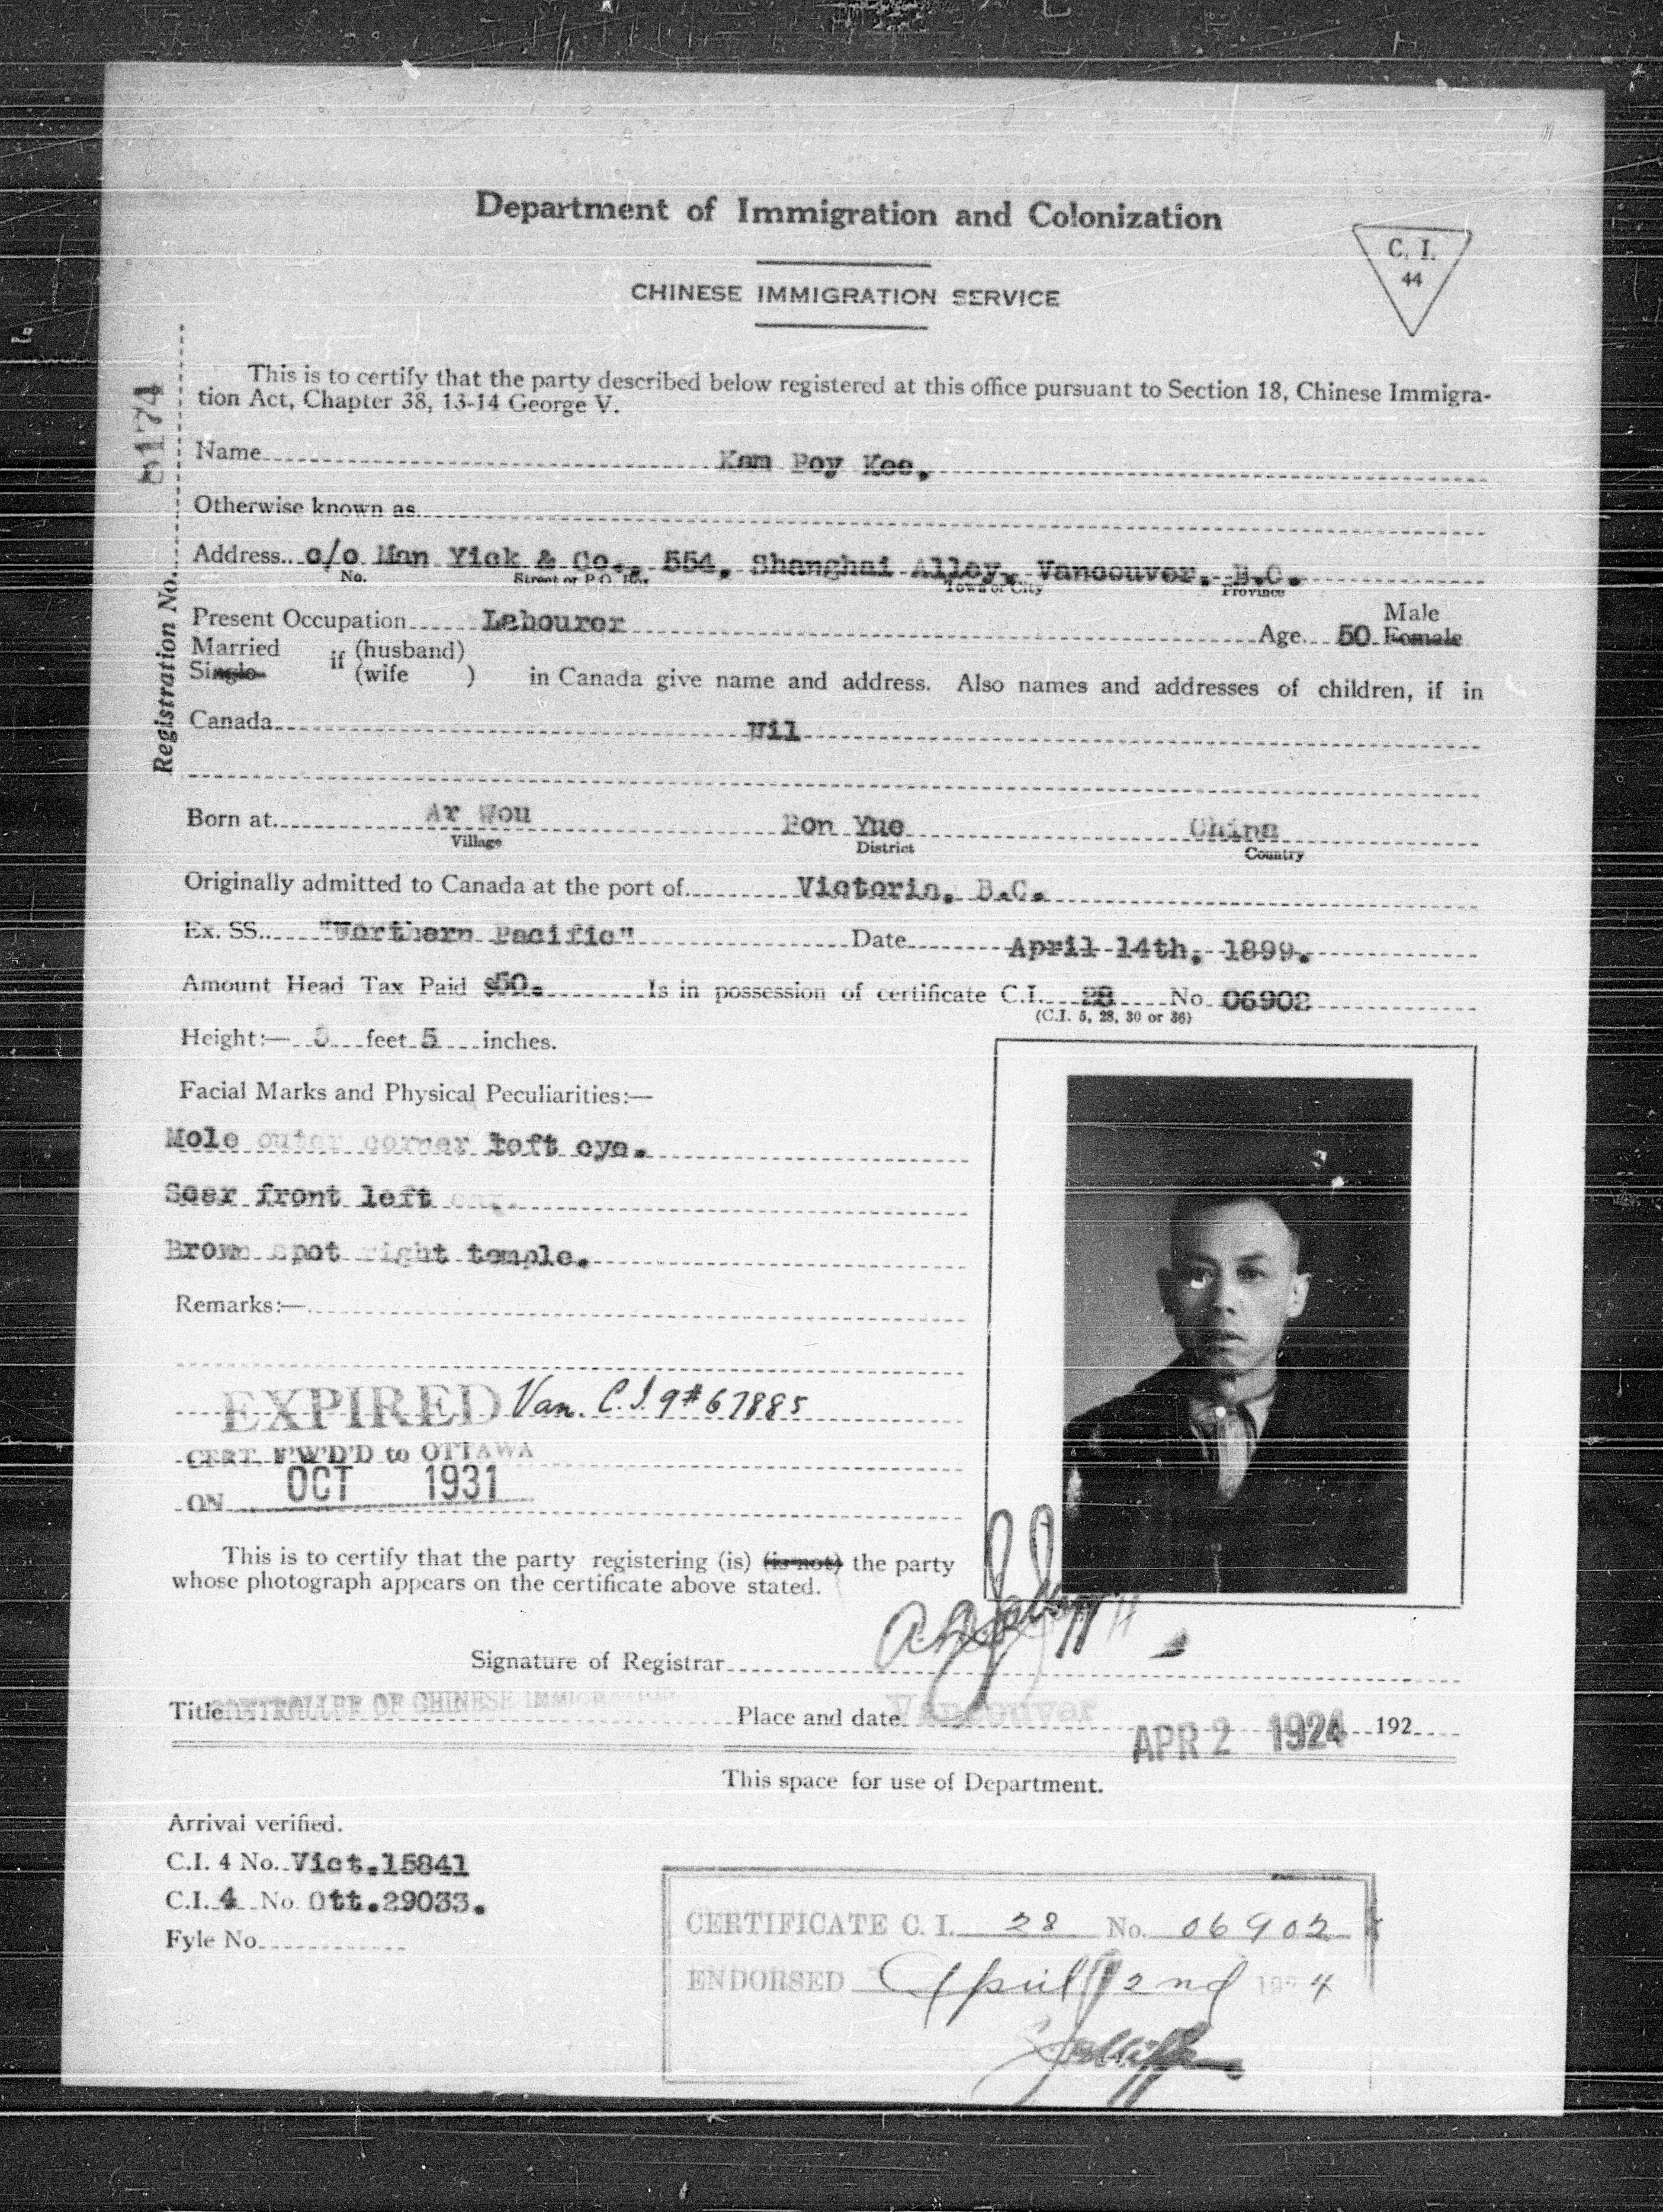 Department of Immigration and Colonization
C. I.
44
CHINESE IMMIGRATION SERVICE
This is to certify that the party described below registered at this office pursuant to Section 18, Chinese Immigra-
tion Act, Chapter 38, 13-14 George V.
Registration No.
Name Kam Poy Kee.
Otherwise known as
Address c/o Man Yick & Co., 554, Shanghai Alley, Vancouver, B.C.
No. Street or P.O. Box Town or City Province
Present Occupation Labourer Age 50 Male Female
Married Single if (husband) (wife ) in Canada give name and address. Also names and addresses of children, if in
Canada Nil
Born at Ar Wou Pon Yue China
Village District Country
Originally admitted to Canada at the port of Victoria, B.C.
Ex. SS. "Northern Pacific" Date April 14th, 1899.
Amount Head Tax Paid $50. Is in possession of certificate C.I. 28 No 06902
(C.I. 5, 28, 30 or 36)
Height:— 5 feet 5 inches.
Facial Marks and Physical Peculiarities:—
Mole outer corner left eye.
Scar front left ear.
Brown spot right temple.
Remarks:—
EXPIRED Van. C.I. 9 # 67885
CERT. F'W'D'D to OTTAWA
ON OCT 1931
This is to certify that the party registering (is) (is not) the party
whose photograph appears on the certificate above stated.
Signature of Registrar
Title CONTROLLER OF CHINESE IMMIGRATION Place and date Vancouver APR 2 1924 192
This space for use of Department.
Arrival verified.
C.I. 4 No. Vict.15841
C.I. 4 No. Ott.29033.
Fyle No.
CERTIFICATE C. I. 28 No. 06902
ENDORSED April 2nd 1924